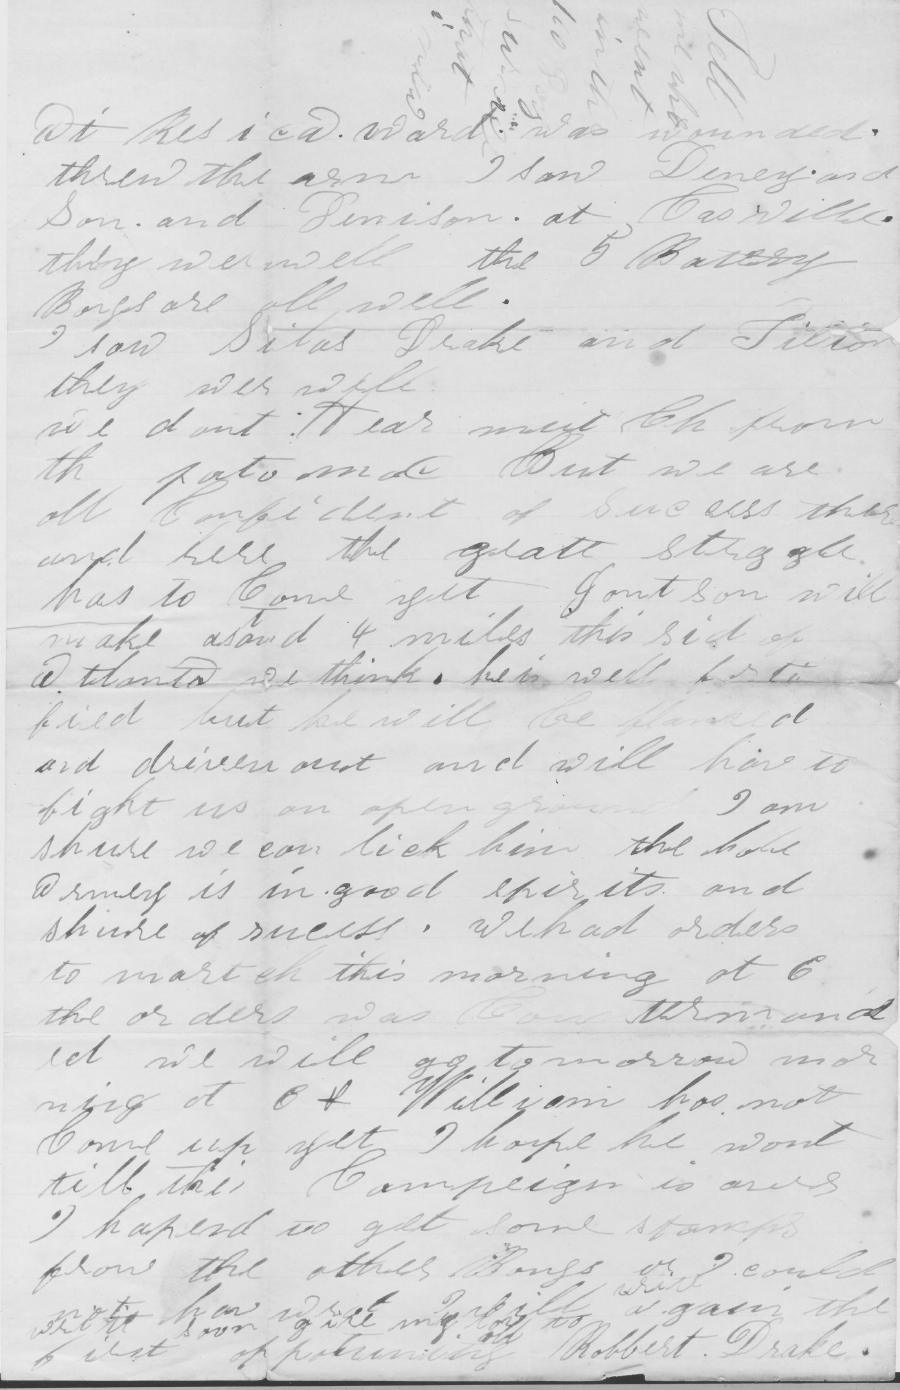 At Resica. Ward. was wounded.
threw the arm I saw Deney. and
Son. and Tenison. at Casville.
they wer well the 5 Battery
Boys are all well.
I saw Silas Drake and
they wer well.
we dont Hear mutch from
th patomac But we are
all Confident of success ther
and here the greatt struggle
has to Come yet Jontson will
make a stand 4 miles this sid of
Atlanta we think. he is well forti
fied but he will be flanked
and driven out and will have to
fight us on open ground I am
shure we can lick him the hole
Armey is in good spirits and
shure of sucess. we had orders
to martch this morning at 6
the orders was Countermand
ed we will go tomorrow mor
ning at 6 & William has not
Come up yet I hope he wont
till this Campeign is over
I hapend to get some stamps
from the other Boys or I could
not hav wrt I will write again the
first oppotunity Robbert. Drake.
write soon give my to
Tell
me
went